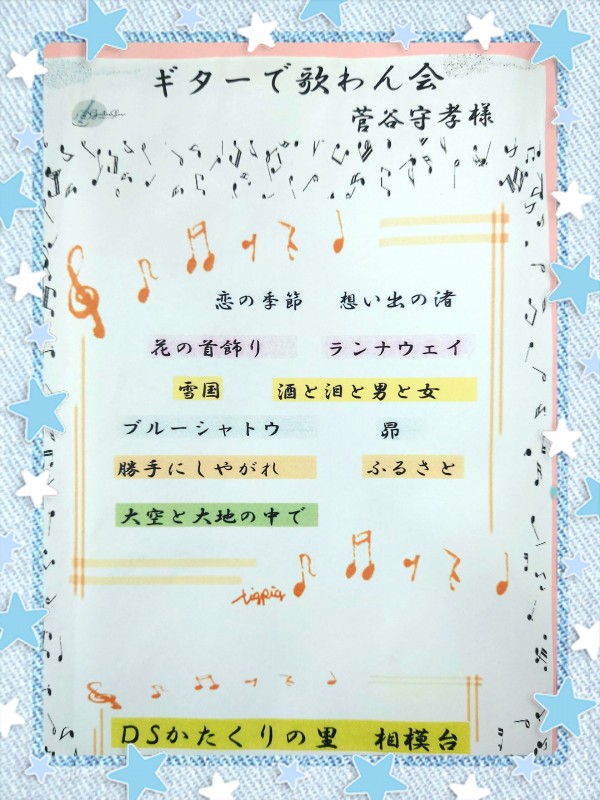 ギターで歌わん会
菅谷守孝様
恋の季節 想い出の渚
花の首飾り ランナウェイ
雪国 酒と泪と男と女
ブルーシャトウ 昴
勝手にしやがれ ふるさと
大空と大地の中で
tigpig
DSかたくりの里 相模台